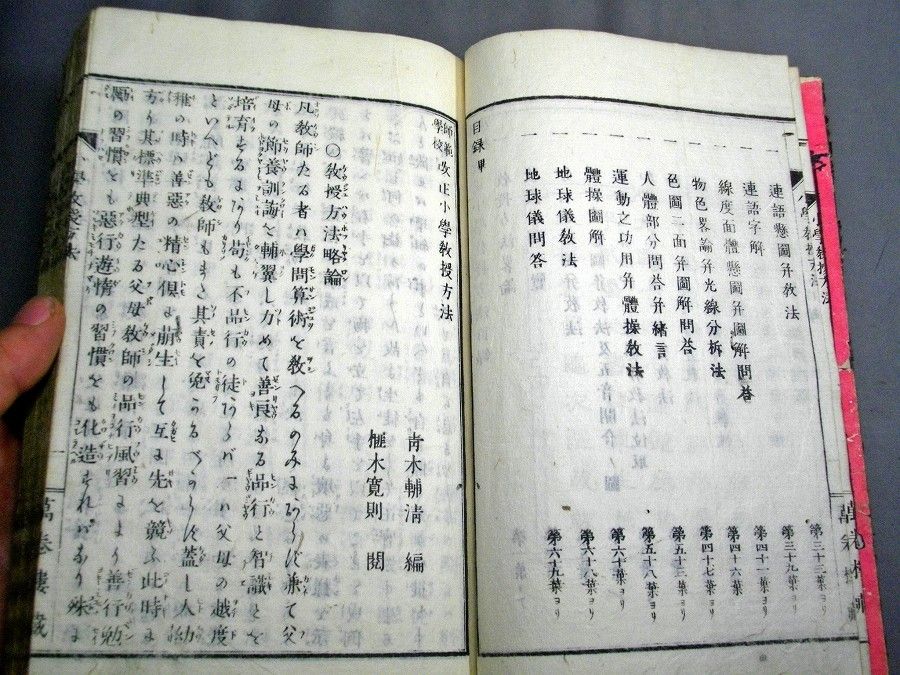 一 連語懸圖幷教法 第三十三葉ヨリ
一 連語字解 第三十九葉ヨリ
一 線度面體懸圖幷圖解問答 第四十一葉ヨリ
一 物色畧論幷光線分析法 第四十六葉ヨリ
一 色圖二面幷圖解問答 第四十七葉ヨリ
一 人體部分問答幷緒言 第五十三葉ヨリ
一 運動之功用幷體操教法 第五十八葉ヨリ
一 體操圖解 第六十葉ヨリ
一 地球儀教法 第六十八葉ヨリ
一 地球儀問答 第六十九葉ヨリ
目録 畢
小學教授方法
師範學校改正小學教授方法
青木輔淸 編
榧木寛則 閲
○教授方法略論
凡教師たる者ハ學問算術を教へるのみまあらず兼て父
母の節養訓誨を輔翼し力めて善良なる品行と智識とを
培育するまあり苟も不品行の徒あらバ一ハ父母の越度
といへども教師もまた其責を免るゝこと能はず蓋し人幼
稚の時ハ善惡の精心倶ま萠生して互ま先を競ふ此時ま
方り其標準典型たる父母教師の品行風習まより善行勉
勵の習慣とも惡行遊惰の習慣とも化造すればあり殊ま
萬巻樓藏